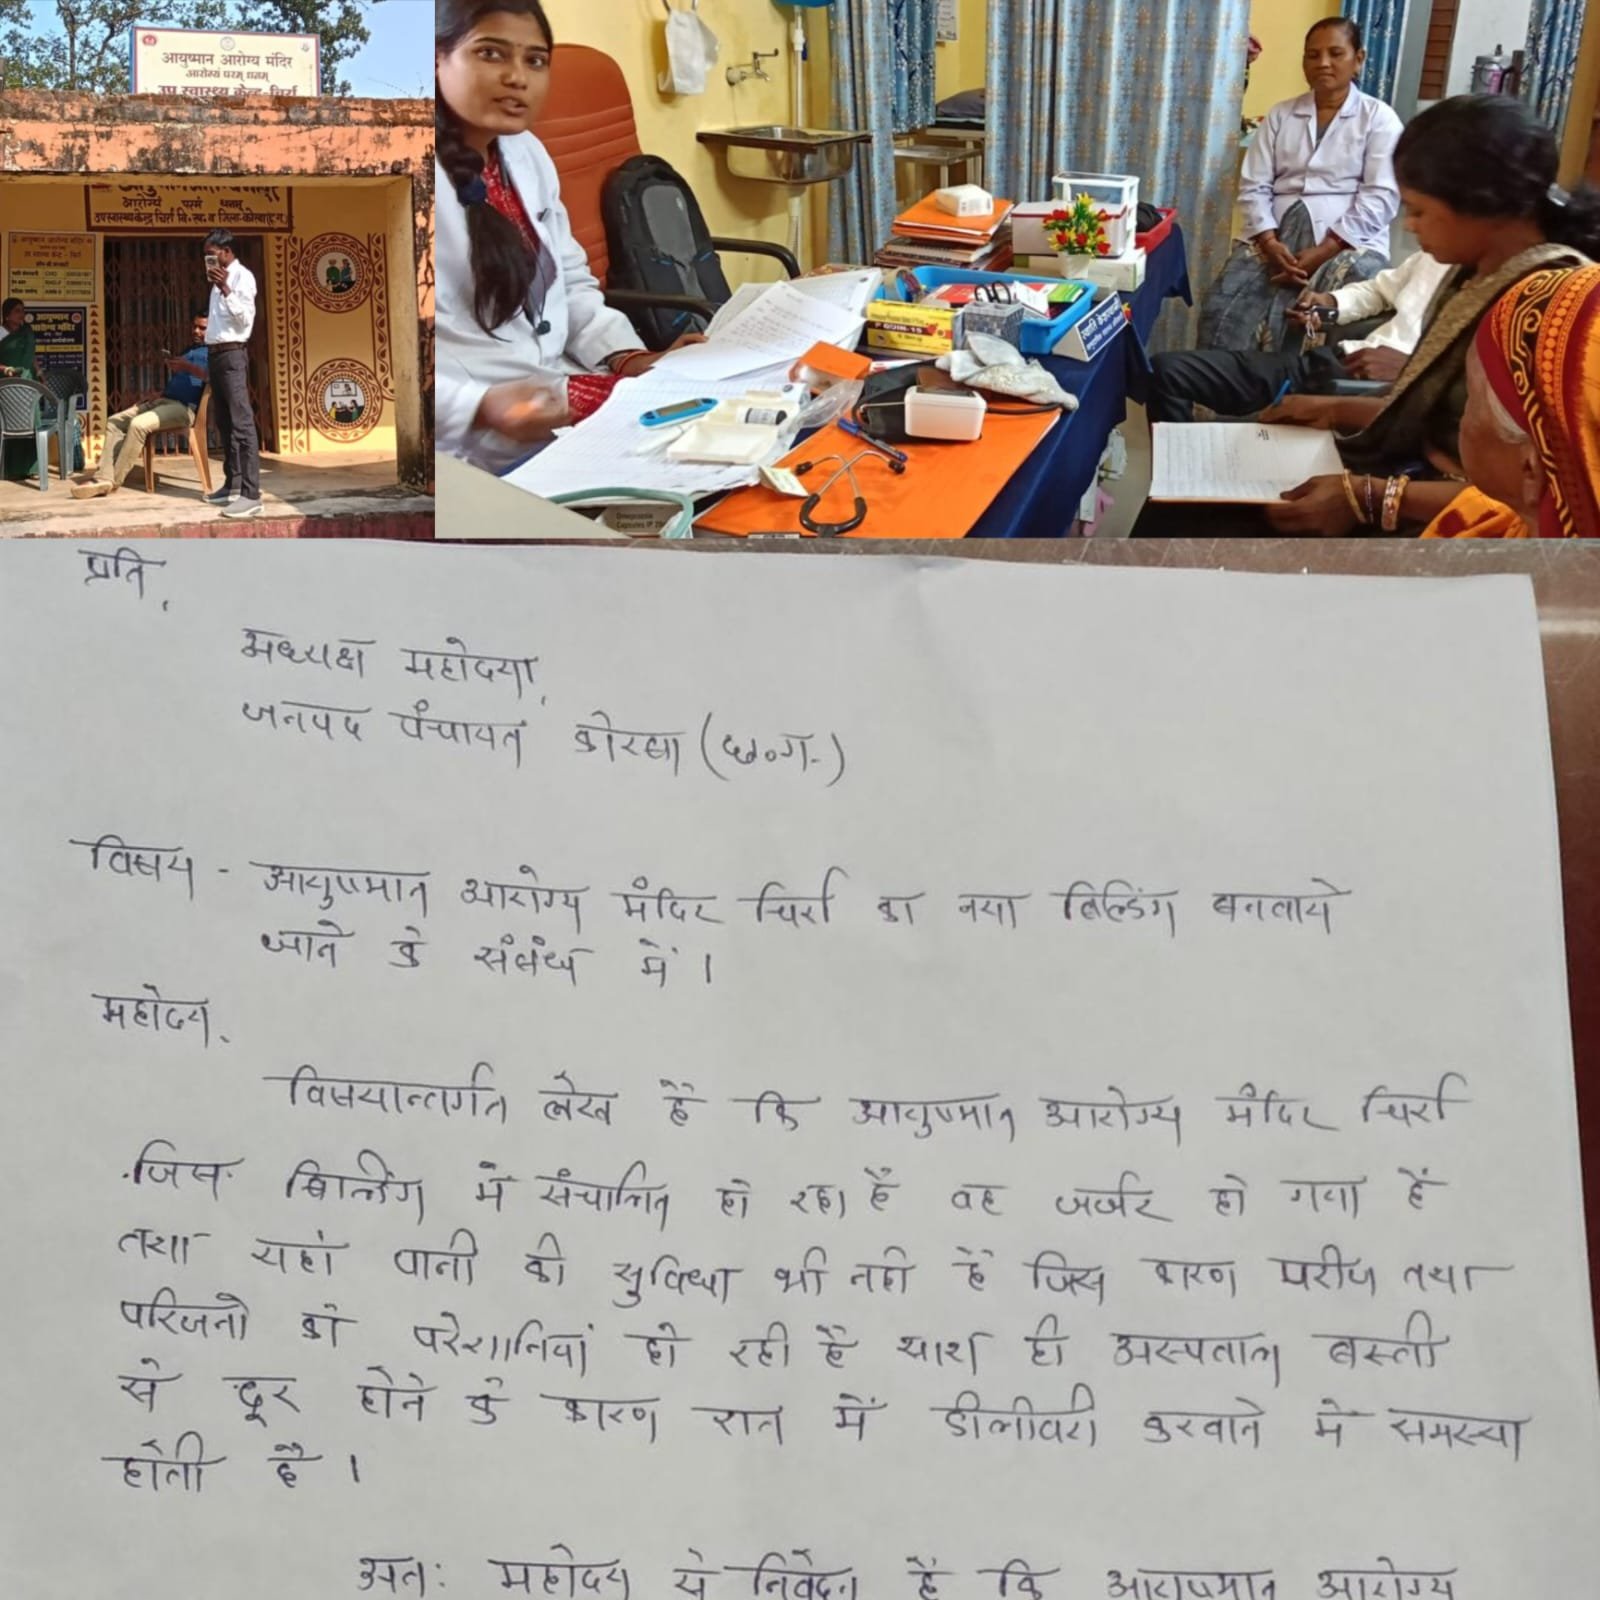 आयुष्मान आरोग्य मंदिर
आरोग्यं परमं धनम्
उप स्वास्थ्य केन्द्र-चिर्रा
आरोग्यं परमं धनम्
उपस्वास्थ्य केन्द्र चिर्रा वि.ख. व जिला-कोरबा(छ.ग.)
आयुष्मान आरोग्य मंदिर
CHO
RHO-F
आयुष्मान
आरोग्य मंदिर
P QUIN-15
स्वाति
Omeprazole
Capsules IP 20
प्रति,
अध्यक्ष महोदया,
जनपद पंचायत कोरबा (छ०ग.)
विषय - आयुष्मान आरोग्य मंदिर चिर्रा का नया बिल्डिंग बनवाये
जाने के संबंध में ।
महोदय,
विषयान्तर्गत लेख है कि आयुष्मान आरोग्य मंदिर चिर्रा
जिस बिल्डिंग में संचालित हो रहा है वह जर्जर हो गया है
तथा यहां पानी की सुविधा भी नही है जिस कारण मरीज तथा
परिजनो को परेशानियां हो रही है साथ ही अस्पताल बस्ती
से दूर होने के कारण रात में डीलीवरी करवाने मे समस्या
होती है ।
अतः महोदय से निवेदन है कि आयुष्मान आरोग्य